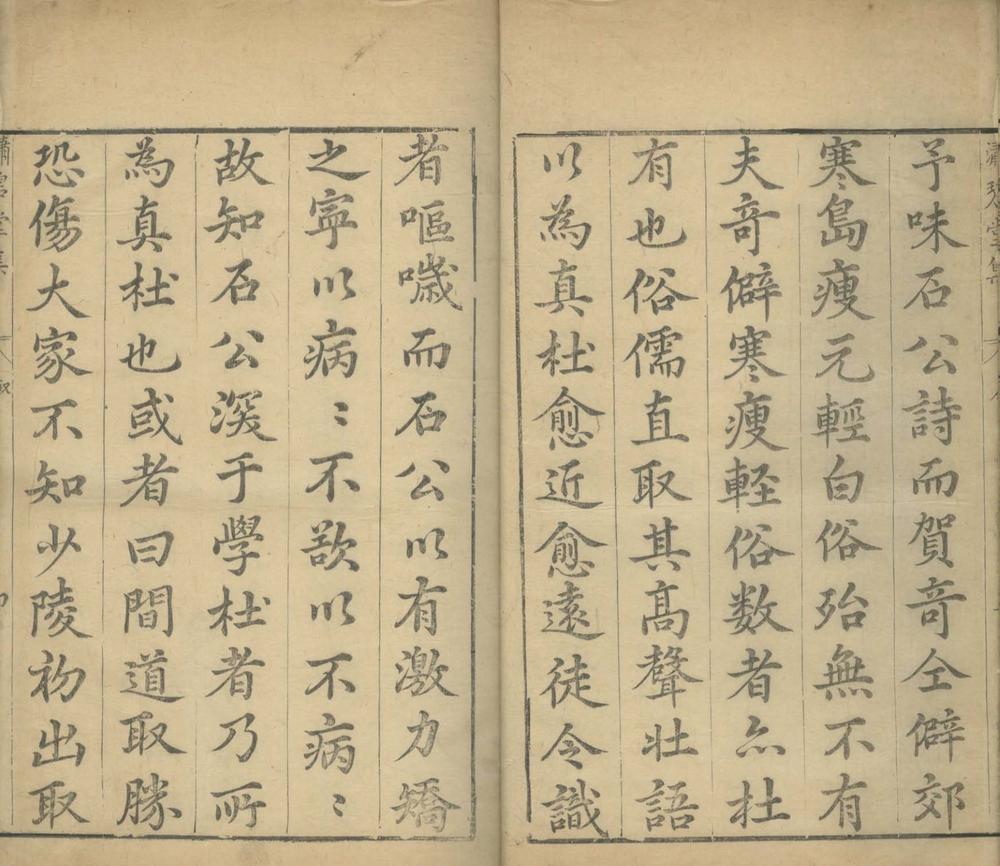 予味石公詩而賀竒仝僻郊
寒島瘦元輕白俗殆無不有
夫竒僻寒瘦輕俗数者亦杜
有也俗儒直取其髙聲壯語
以為真杜愈近愈遠徒令識
者嘔噦而石公以有激力矯
之寧以病〻不欲以不病〻
故知石公深于學杜者乃所
為真杜也或者曰間道取勝
恐傷大家不知少陵初出取